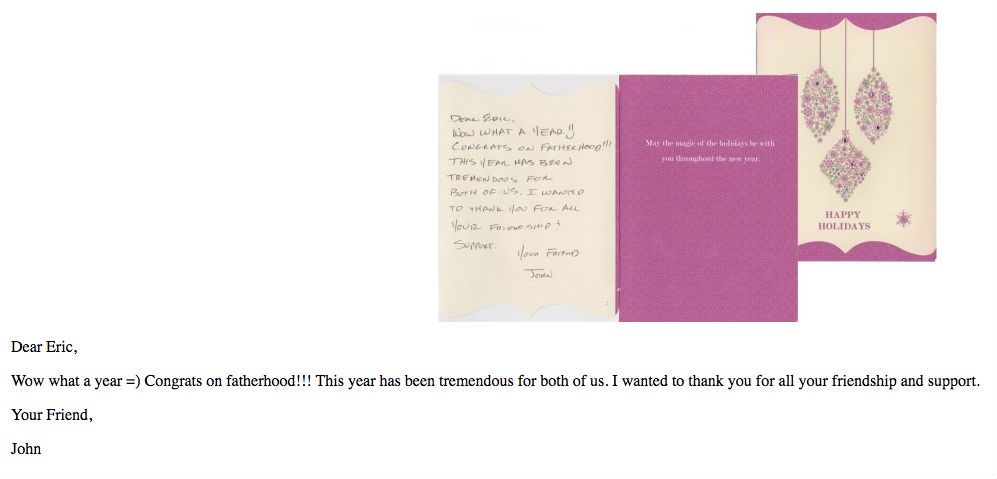 Dear Eric,
Wow what a year!!
Congrats on fatherhood!!!
This year has been
tremendous for
both of us. I wanted
to thank you for all
your friendship &
support.
Your Friend
John
May the magic of the holidays be with
you throughout the new year.
HAPPY
HOLIDAYS
Dear Eric,
Wow what a year =) Congrats on fatherhood!!! This year has been tremendous for both of us. I wanted to thank you for all your friendship and support.
Your Friend,
John